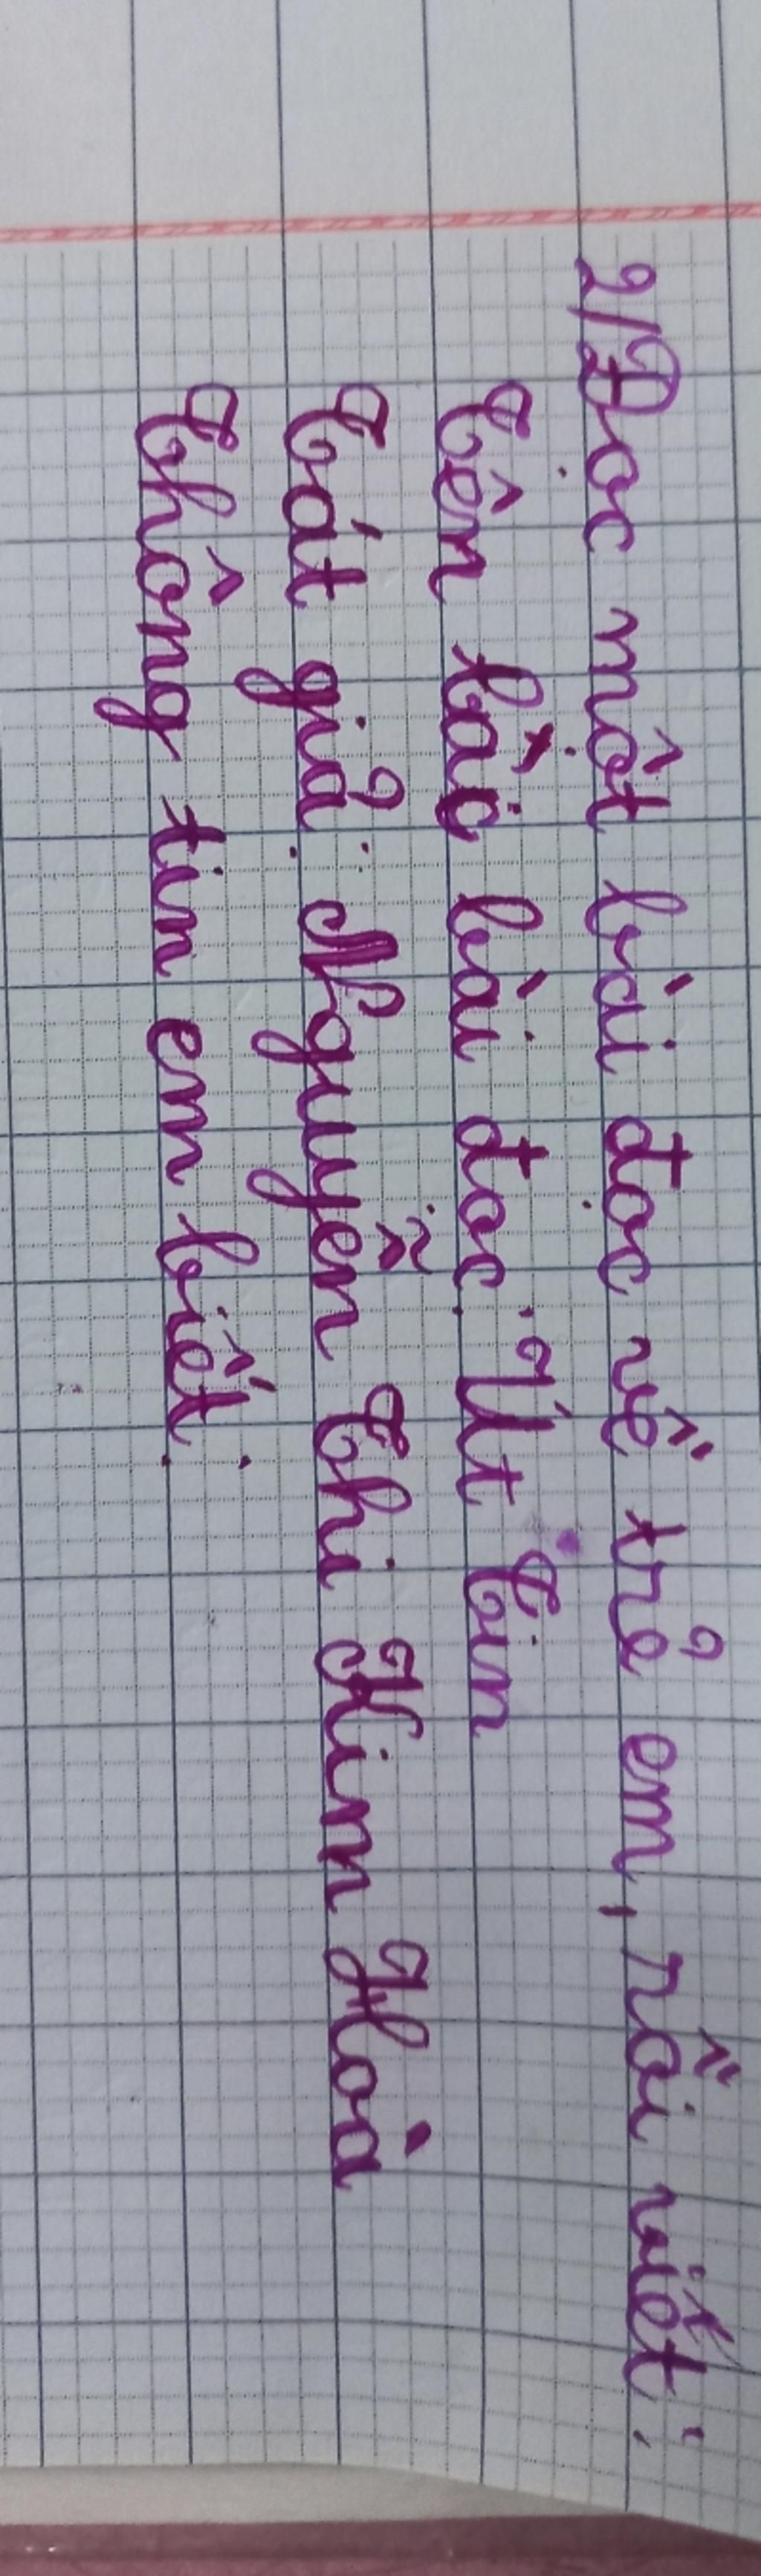 2/Đọc một bài đọc về trẻ em, rồi viết:
Tên bài đọc: Út Tin
Tát giả: Nguyễn Thi Kim Hoà
Thông tin em biết: